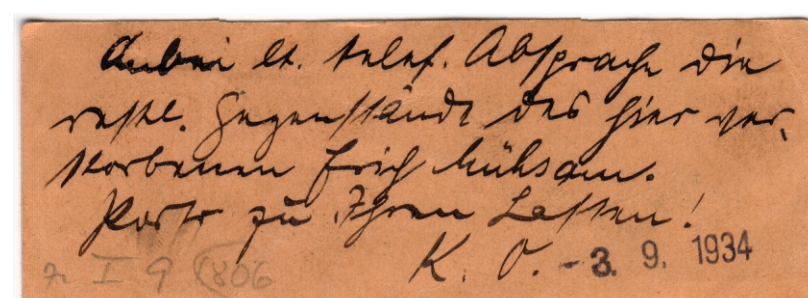 Anbei lt. telef. Absprache die
restl. Gegenstände des hier ver-
storbenen Erich Mühsam.
Porto zu Ihren Lasten!
K. O. - 3. 9. 1934
I 9 (806